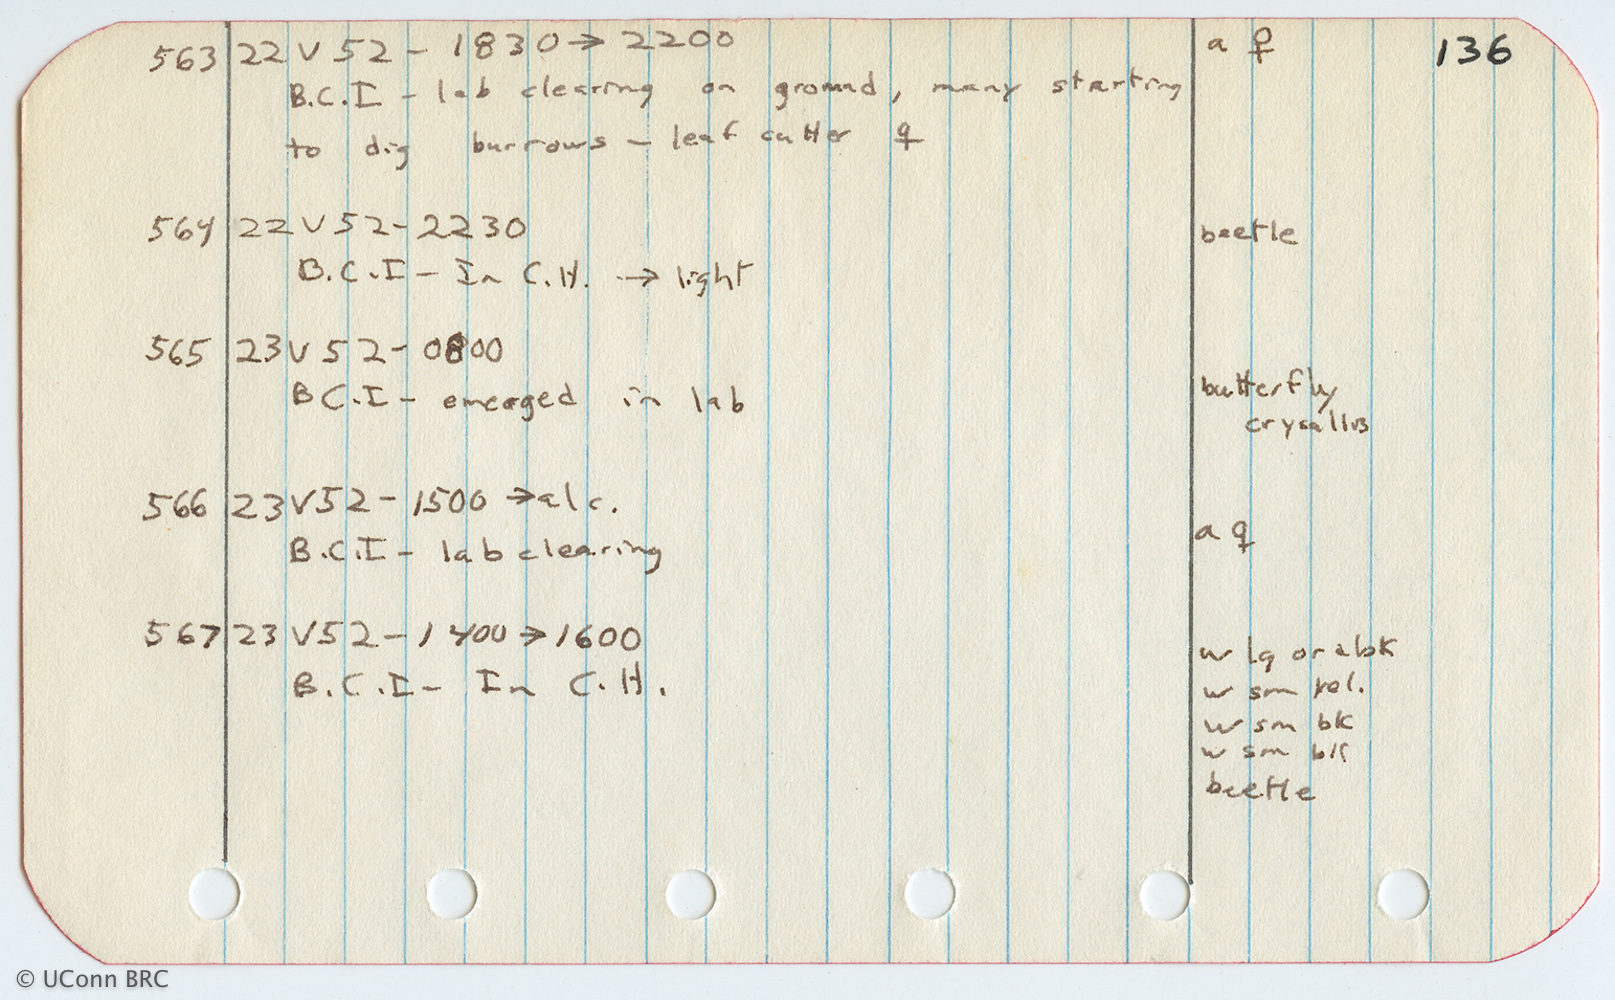 136
563 22 V 52 - 1830 → 2200 a ♀
B.C.I - lab clearing on ground, many starting
to dig burrows - leaf cutter ♀
564 22 V 52 - 2230 beetle
B.C.I - In C.H. → light
565 23 V 52 - 0800
B C.I - emerged in lab butterfly
crysallis
566 23 V 52 - 1500 → alc. a ♀
B.C.I - lab clearing
567 23 V 52 - 1400 → 1600 w lg or abk
B.C.I - In C.H. w sm yel.
w sm bk
w sm bk
beetle
© UConn BRC